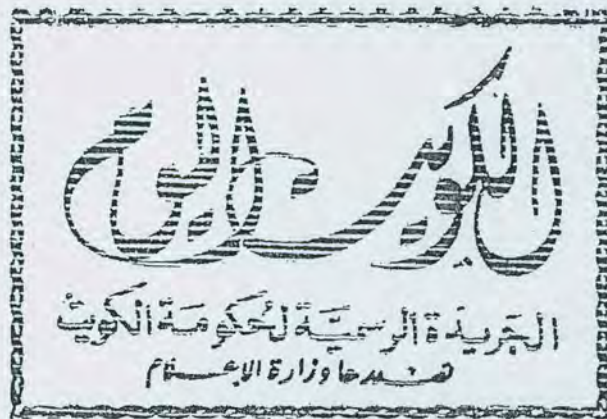 الكويت اليوم
الجريدة الرسمية لحكومة الكويت
تصدرها وزارة الإعلام